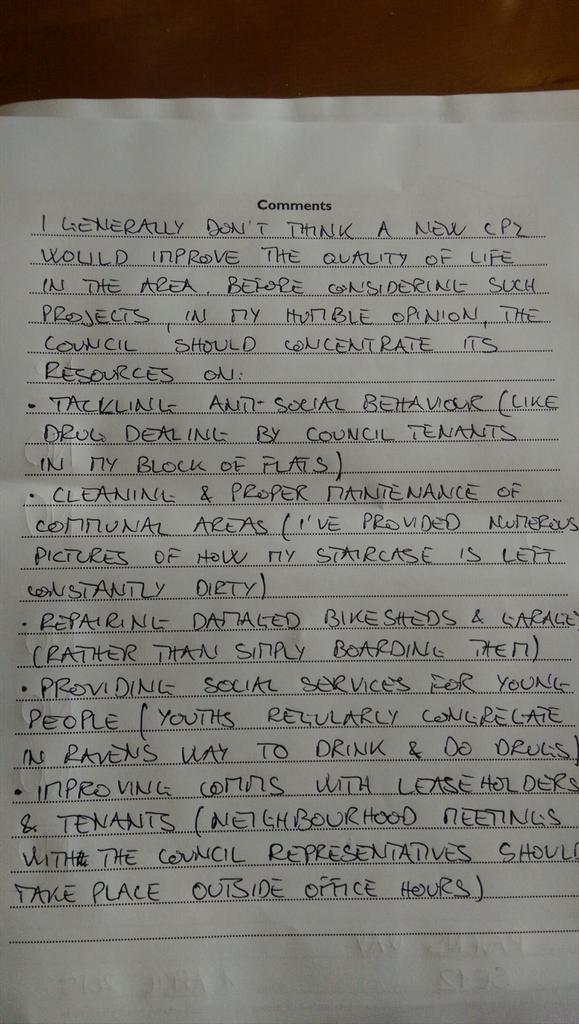 Comments
I GENERALLY DON'T THINK A NEW CPZ
WOULD IMPROVE THE QUALITY OF LIFE
IN THE AREA. BEFORE CONSIDERING SUCH
PROJECTS, IN MY HUMBLE OPINION, THE
COUNCIL SHOULD CONCENTRATE ITS
RESOURCES ON:
• TACKLING ANTI-SOCIAL BEHAVIOUR (LIKE
DRUG DEALING BY COUNCIL TENANTS
IN MY BLOCK OF FLATS)
• CLEANING & PROPER MAINTENANCE OF
COMMUNAL AREAS (I'VE PROVIDED NUMEROUS
PICTURES OF HOW MY STAIRCASE IS LEFT
CONSTANTLY DIRTY)
• REPAIRING DAMAGED BIKESHEDS & GARAGES
(RATHER THAN SIMPLY BOARDING THEM)
• PROVIDING SOCIAL SERVICES FOR YOUNG
PEOPLE (YOUTHS REGULARLY CONGREGATE
IN RAVENS WAY TO DRINK & DO DRUGS)
• IMPROVING COMMS WITH LEASEHOLDERS
& TENANTS (NEIGHBOURHOOD MEETINGS
WITH THE COUNCIL REPRESENTATIVES SHOULD
TAKE PLACE OUTSIDE OFFICE HOURS)